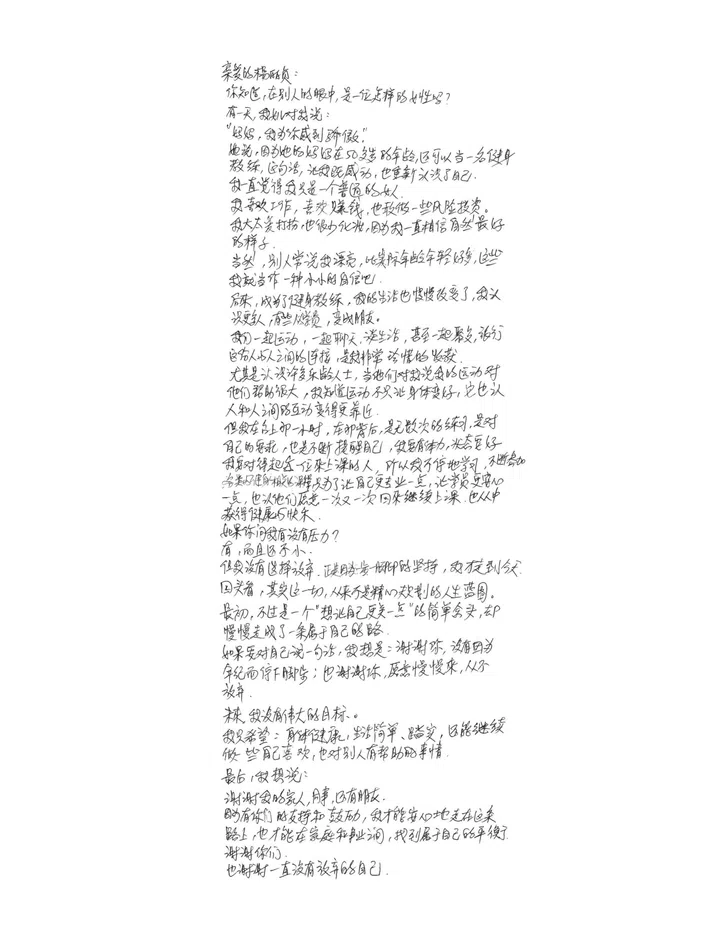 亲爱的杨丽贞：
你知道，在别人的眼中，是一位怎样的女性吗？
有一天，我女儿对我说：
“妈妈，我为你感到骄傲。”
她说，因为她的妈妈在50多岁的年龄，还可以当一名健身
教练，这句话，让我既感动，也重新认识了自己.
我一直觉得我只是一个普通的女人.
我喜欢工作，喜欢赚钱，也敢做一些风险投资。
我不太爱打扮，也很少化妆，因为我一直相信自然最好
的样子.
当然，别人常说我漂亮，比实际年龄年轻好多，这些
我就当作一种小小的自信吧.
后来，成为了健身教练，我的生活也慢慢改变了，我认
识更多人，有些从学员，变成朋友。
我们一起运动，一起聊天，谈生活，甚至一起聚会，旅行
这份人与人之间的连接，是我非常珍惜的收获.
尤其是认识许多乐龄人士，当他们对我说我的运动对
他们帮助很大，我知道运动不只让身体变好，它也让
人和人之间的互动变得更靠近.
但我在台上那一小时，在那背后，是无数次的练习，是对
自己的要求，也是不断提醒自己，我要有体力，状态要好
我要对得起每一位来上课的人，所以我不停地学习，不断参加
课只为了让自己更专业一点，让学员更安心
一点，也让他们愿意一次又一次回来继续上课.也从中
获得健康与快乐.
如果你问我有没有压力？
有，而且还不小.
但我没有选择放弃.正是因为一份的坚持，我才走到今天.
回头看，其实这一切，从来不是精心规划的人生蓝图。
最初，不过是一个“想让自己更美一点”的简单念头，却
慢慢走成了一条属于自己的路.
如果要对自己说一句话，我想是：谢谢你，没有因为
年纪而停下脚步；也谢谢你，愿意慢慢来，从不
放弃.
未来，我没有伟大的目标.。
我只希望：身体健康，生活简单、踏实，还能继续
做一些自己喜欢，也对别人有帮助的事情.
最后，我想说：
谢谢我的家人，同事，还有朋友.
因为有你们的支持和鼓励，我才能安心地走在这条
路上，也才能在家庭和事业之间，找到属于自己的平衡.
谢谢你们.
也谢谢一直没有放弃的自己.